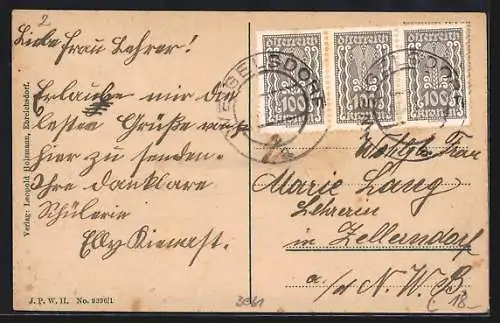 2
Liebe Frau Lehrer!
Erlaube mir die
besten Grüße von
hier zu senden.
Ihre dankbare
Schülerin
Elly Kienast.
Verlag: Leopold Hofmann, Ebreichsdorf.
J. P. W. II. No. 9396/1
österreich
100
österreich
100
österreich
100
Wohlgb. Frau
Marie Lang
Lehrerin
in Zellerndorf
a/d N. W. B
18.-